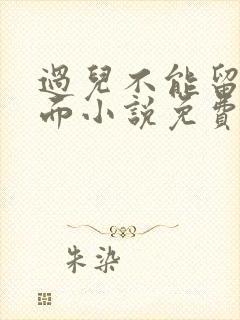 過兒不能留
而小說免費
朱染